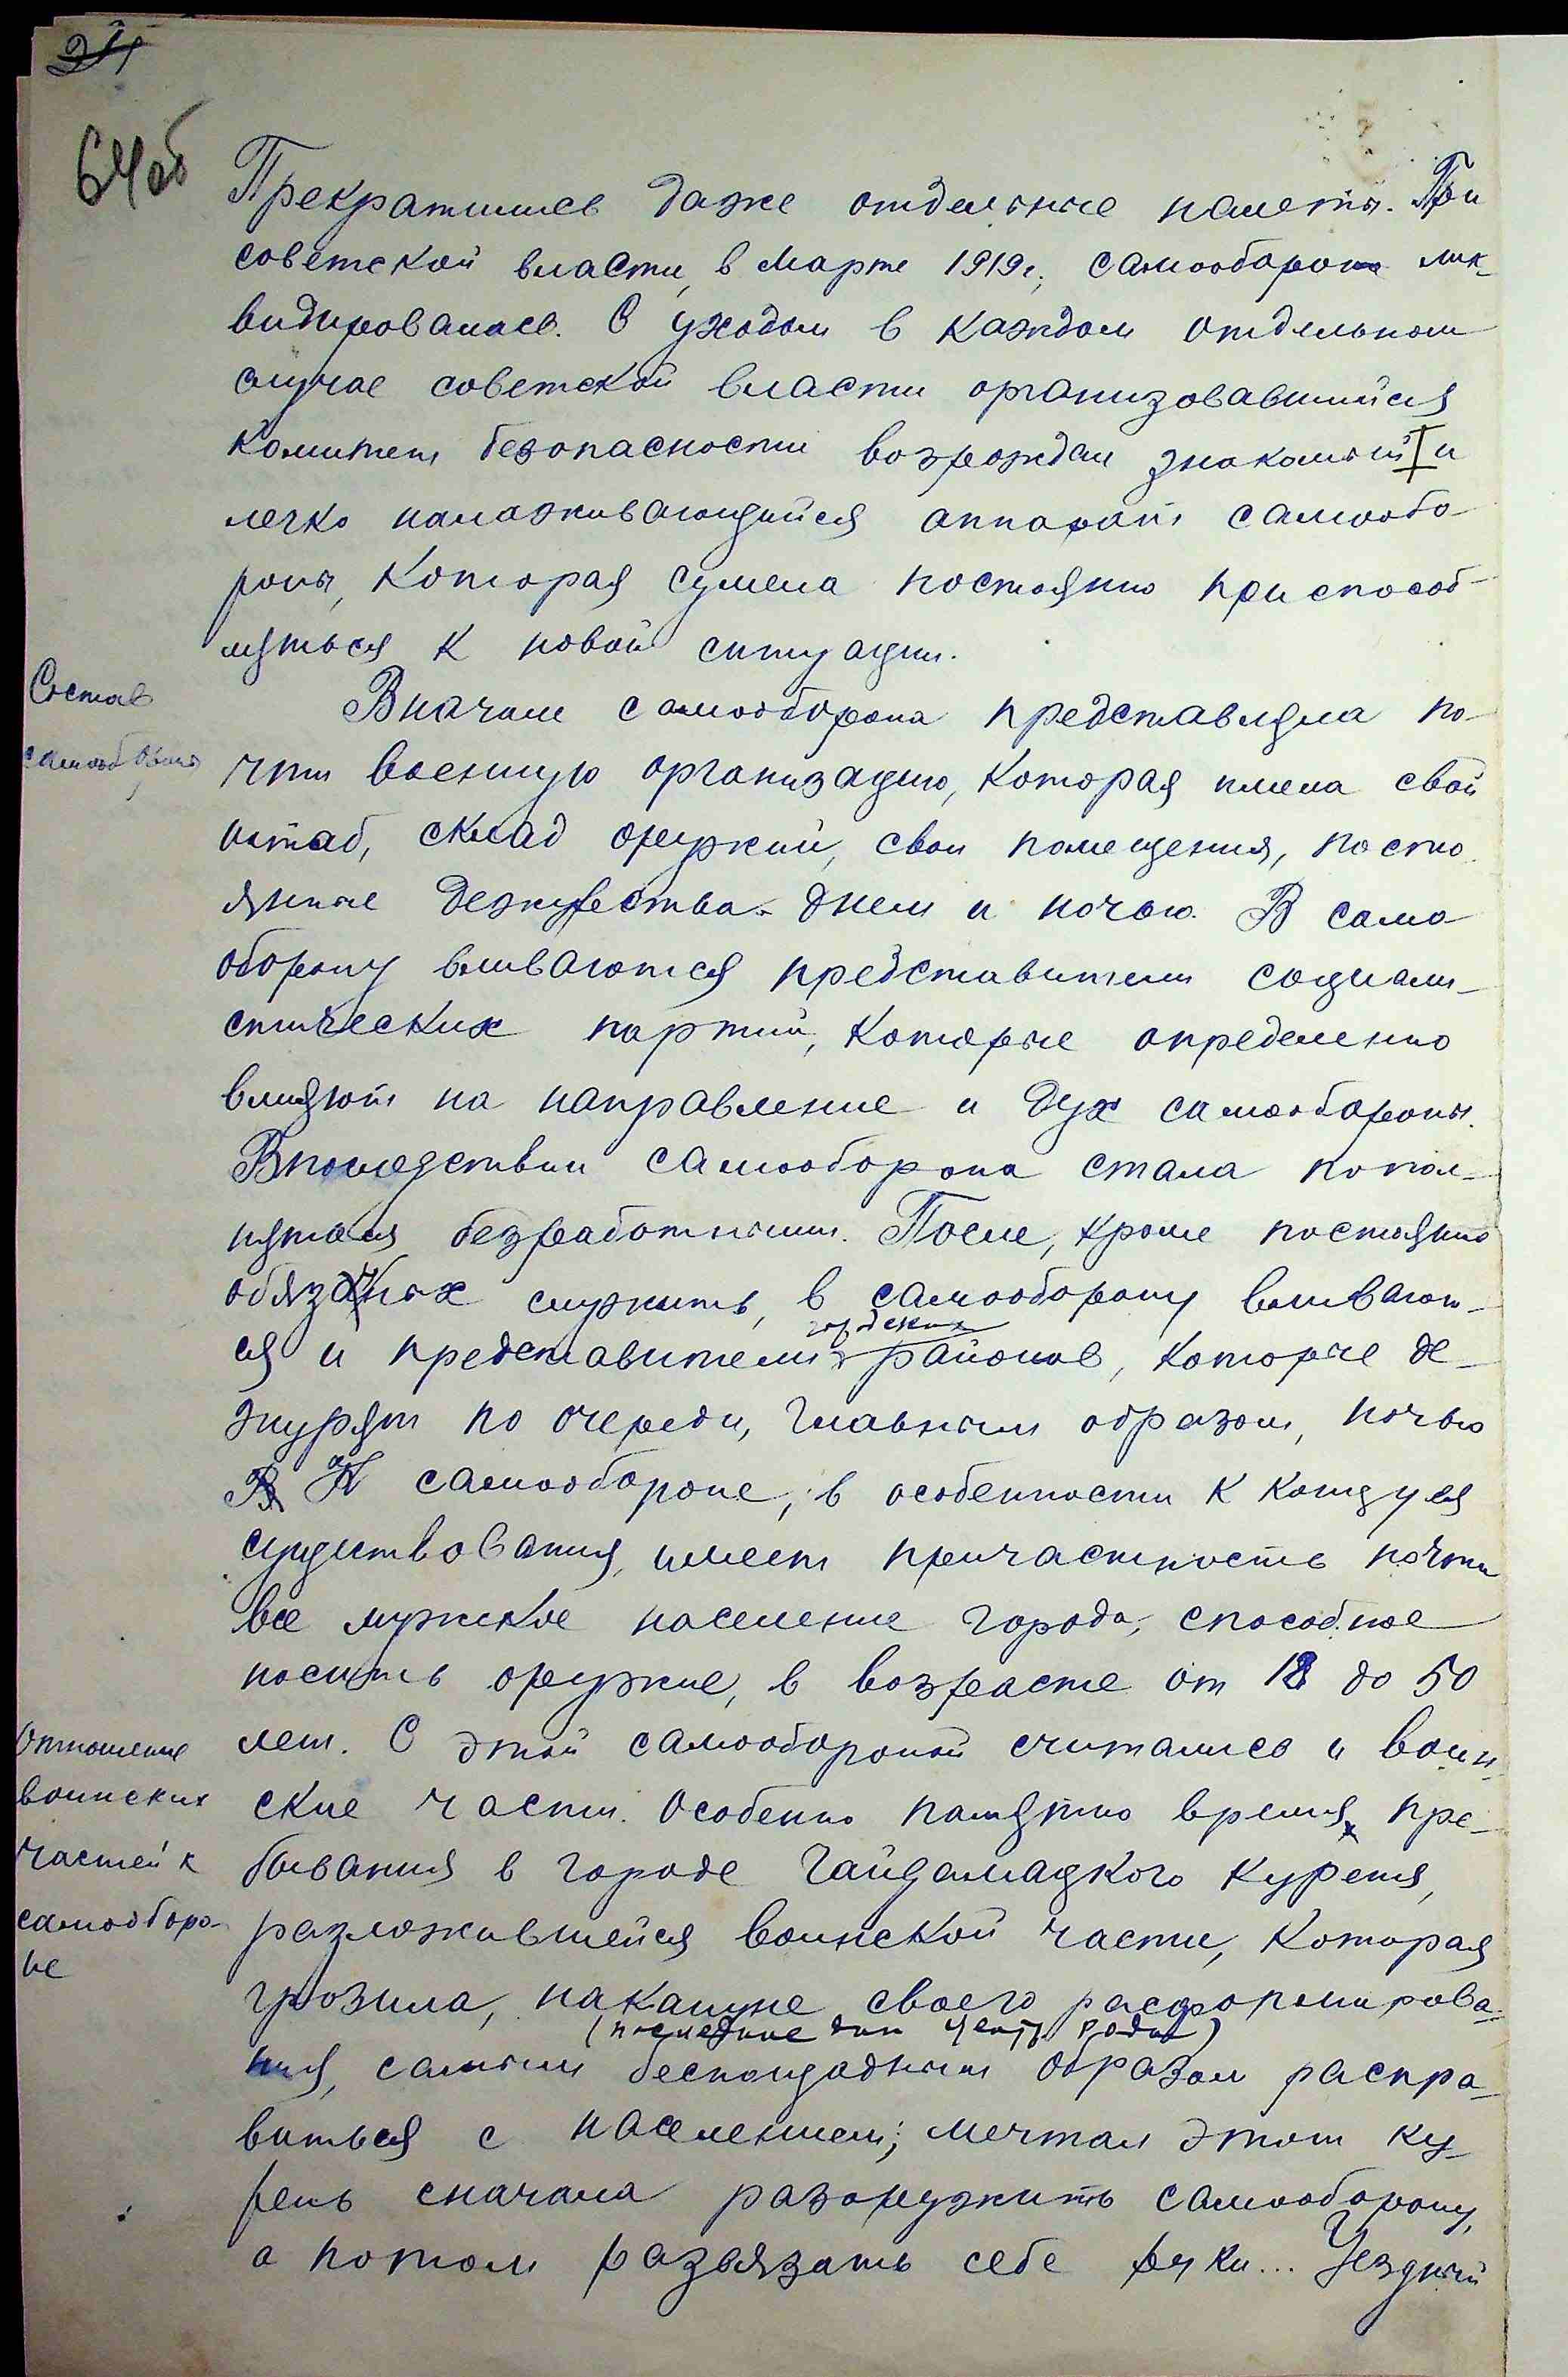 24
64об
Прекратились даже отдельные налеты. При
советской власти, в марте 1919г., самооборона лик-
видировалась. С уходом в каждом отдельном
случае советской власти организовавшийся
комитет безопасности возрождал знакомый и
легко налаживающийся аппарат самообо-
роны, которая сумела постоянно приспособ-
ляться к новой ситуации.
Состав
самообороны
Вначале самооборона представляла по-
чти военную организацию, которая имела свой
штаб, склад оружий, свои помещения, посто-
янные дежурства днем и ночью. В само-
оборону вливаются представители социали-
стических партий, которые определенно
влияют на направление и дух самообороны.
Впоследствии самооборона стала попол-
няться безработными. После, кроме постоянно
обязаных служить, в самооборону вливают-
городских
ся и представители районов, которые де-
журят по очереди, главным образом, ночью
К самообороне, в особенности к концу ея
существования, имеет причастность почти
все мужское население города, способное
носить оружие, в возрасте от 18 до 50
Отношение
воинских
частей к
самооборо-
не
лет. С этой самообороной считались и воин-
ские части. Особенно памятно время пре-
бывания в городе Гайдамацкого Куреня,
разложившейся воинской части, которая
грозила, накануне своего расформирова-
(последние дни Центр. рады)
ния, самым беспощадным образом распра-
виться с населением; мечтал этот ку-
рень сначала разоружить самооборону,
а потом развязать себе руки... Уездный